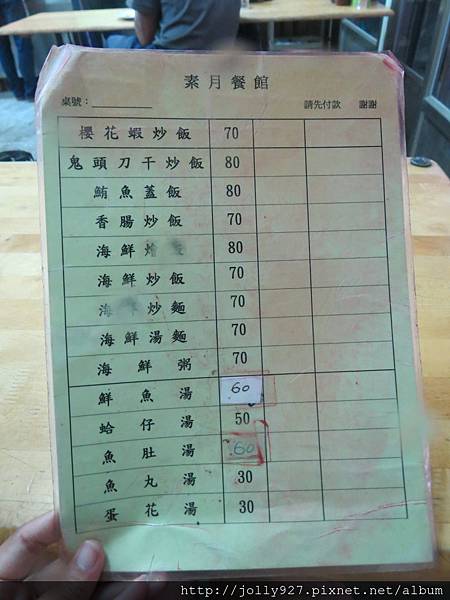 素月餐館
桌號：
請先付款 謝謝
櫻花蝦炒飯 70
鬼頭刀干炒飯 80
鮪魚蓋飯 80
香腸炒飯 70
海鮮燴 80
海鮮炒飯 70
海 炒麵 70
海鮮湯麵 70
海鮮粥 70
鮮魚湯 60
蛤仔湯 50
魚肚湯 60
魚丸湯 30
蛋花湯 30
http://jolly927.pixnet.net/album